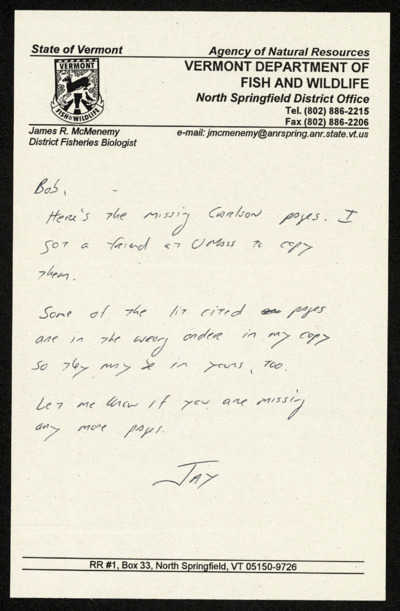 State of Vermont
Agency of Natural Resources
VERMONT DEPARTMENT OF
FISH AND WILDLIFE
North Springfield District Office
Tel. (802) 886-2215
Fax (802) 886-2206
VERMONT
FISH & WILDLIFE
James R. McMenemy
District Fisheries Biologist
e-mail: jmcmenemy@anrspring.anr.state.vt.us
Bob,
Here's the missing Carlson pages. I
got a friend at UMass to copy
them.
Some of the lit cited pages
are in the wrong order in my copy
so they may be in yours, too.
Let me know if you are missing
any more pages.
JAY
RR #1, Box 33, North Springfield, VT 05150-9726